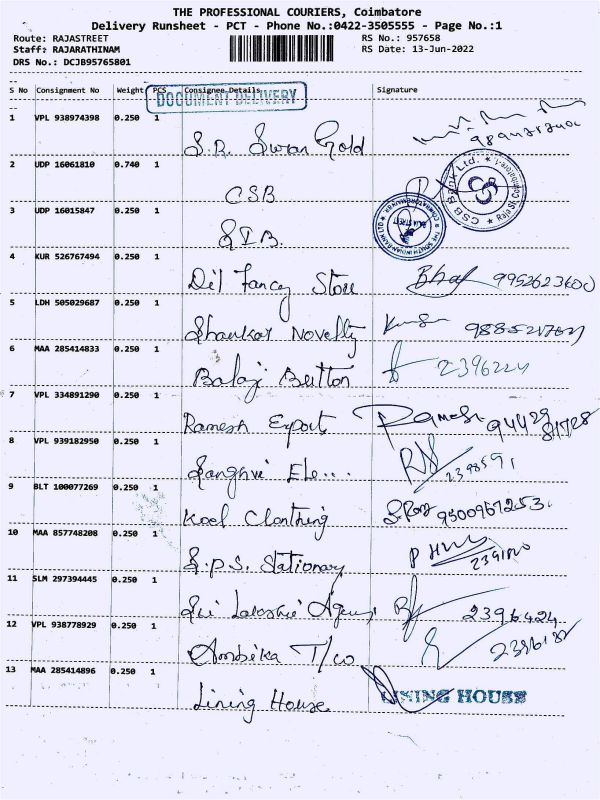 THE PROFESSIONAL COURIERS, Coimbatore
Delivery Runsheet - PCT - Phone No.:0422-3505555 - Page No.:1
Route: RAJASTREET RS No.: 957658
Staff: RAJARATHINAM RS Date: 13-Jun-2022
DRS No.: DCJB95765801
S No Consignment No Weight PCS Consignee Details Signature
DOCUMENT DELIVERY
1 VPL 938974398 0.250 1
S.R. Swan Gold
2 UDP 16061810 0.740 1
CSB
CSB Bank Ltd. Raja St. Coimbatore-1
3 UDP 16015847 0.250 1
S.I.B.
THE SOUTH INDIAN BANK LTD RAJA STREET
4 KUR 526767494 0.250 1
Dil Fancy Store 9952623600
5 LDH 505029687 0.250 1
Shankar Novelty
6 MAA 285414833 0.250 1
Balaji Button 2396224
7 VPL 334891290 0.250 1
Ramesh Export Ramesh
8 VPL 939182950 0.250 1
Sanghvi Ele.... 2398591
9 BLT 100077269 0.250 1
Kool Clothing 9500967253.
10 MAA 857748208 0.250 1
S.P.S. Stationary
11 SLM 297394445 0.250 1
Sri Agency 2396424
12 VPL 938778929 0.250 1
Ambika T/co
13 MAA 285414896 0.250 1
Lining House LINING HOUSE